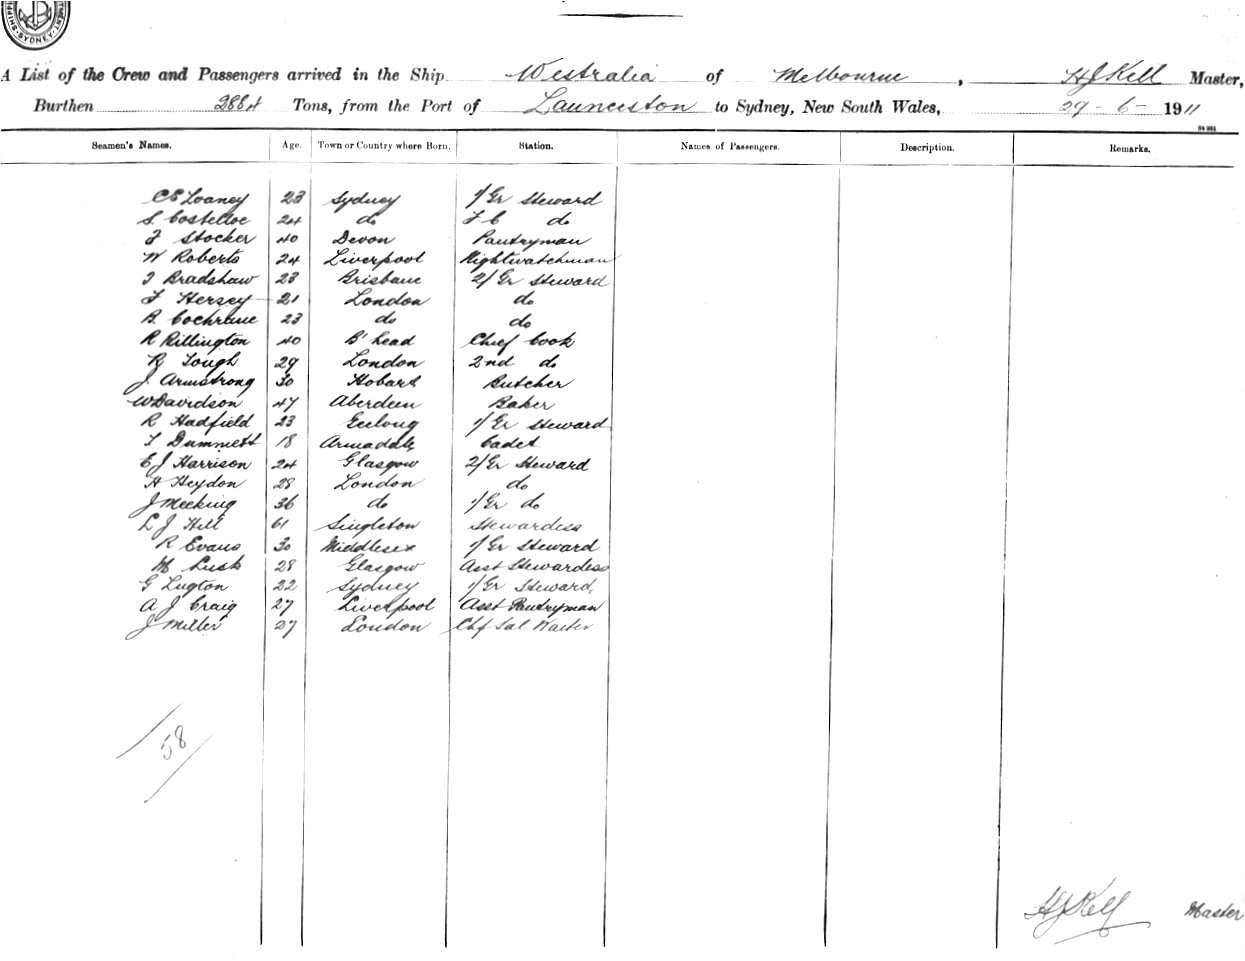 SHIPPING SYDNEY
A List of the Crew and Passengers arrived in the Ship Westralia of Melbourne, H J Kell Master,
Burthen 2884 Tons, from the Port of Launceston to Sydney, New South Wales, 29-6-1911
Seamen's Names. Age. Town or Country where Born. Station. Names of Passengers. Description. Remarks.
Loaney 23 Sydney 1/Gr Steward
S. Costelloe 24 do F C do
F Stocker 40 Devon Pantryman
W Roberts 24 Liverpool Nightwatchman
J Bradshaw 23 Brisbane 2/Gr Steward
F Hersey 21 London do
B. Cochrane 23 do do
R Rillington 40 B'head Chief Cook
R Tough 29 London 2nd do
J. Armstrong 30 Hobart Butcher
W Davidson 47 Aberdeen Baker
R Hadfield 23 Geelong 1/Gr Steward
T Dummett 18 Armadale Cadet
E J Harrison 24 Glasgow 2/Gr Steward
H Heydon 28 London do
J Meeking 36 do 1/Gr do
L J Hill 61 Singleton Stewardess
R Evans 30 Middlesex 1/Gr Steward
M Lusk 28 Glasgow Asst Stewardess
G Lugton 22 Sydney 1/Gr Steward
A J Craig 27 Liverpool Asst Pantryman
J Miller 27 London Chf Sal Waiter
58
H J Kell Master